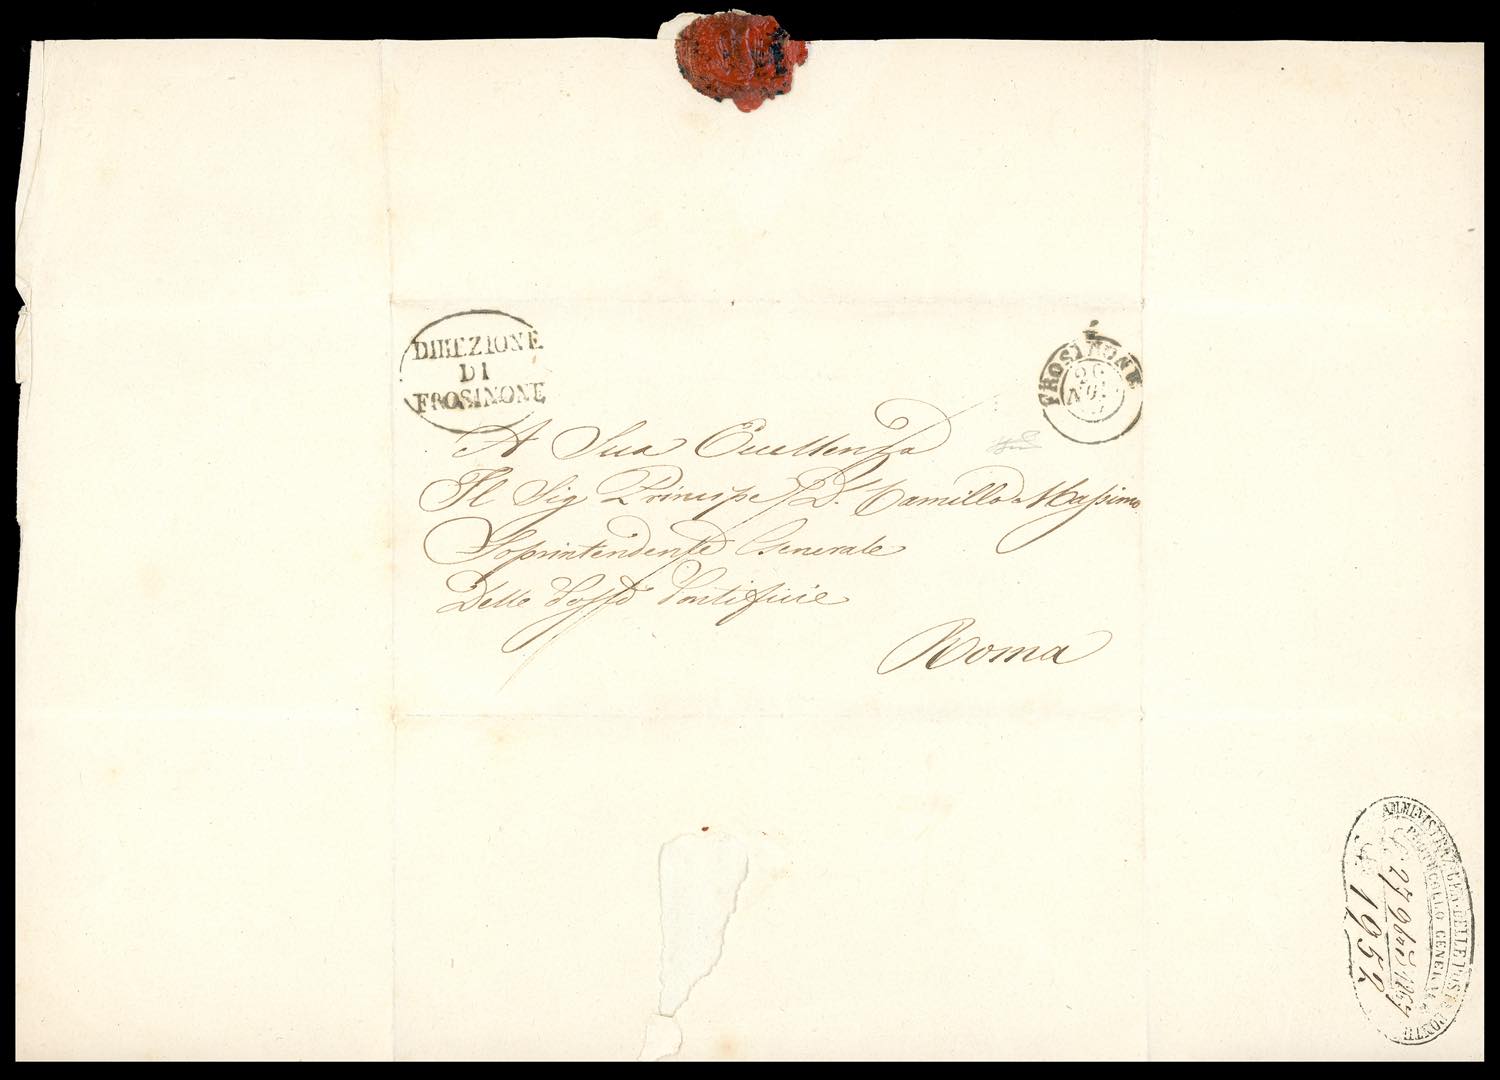 DIREZIONE
DI
FROSINONE
FROSINONE
26
NOV
A Sua Eccellenza
Il Sig Principe D. Camillo Massimo
Soprintendente Generale
Delle Poste Pontificie
Roma
AMMINISTRAZ. GEN. DELLE POSTE PONTIF
PROTOCOLLO GENERALE
27 9bre
1952